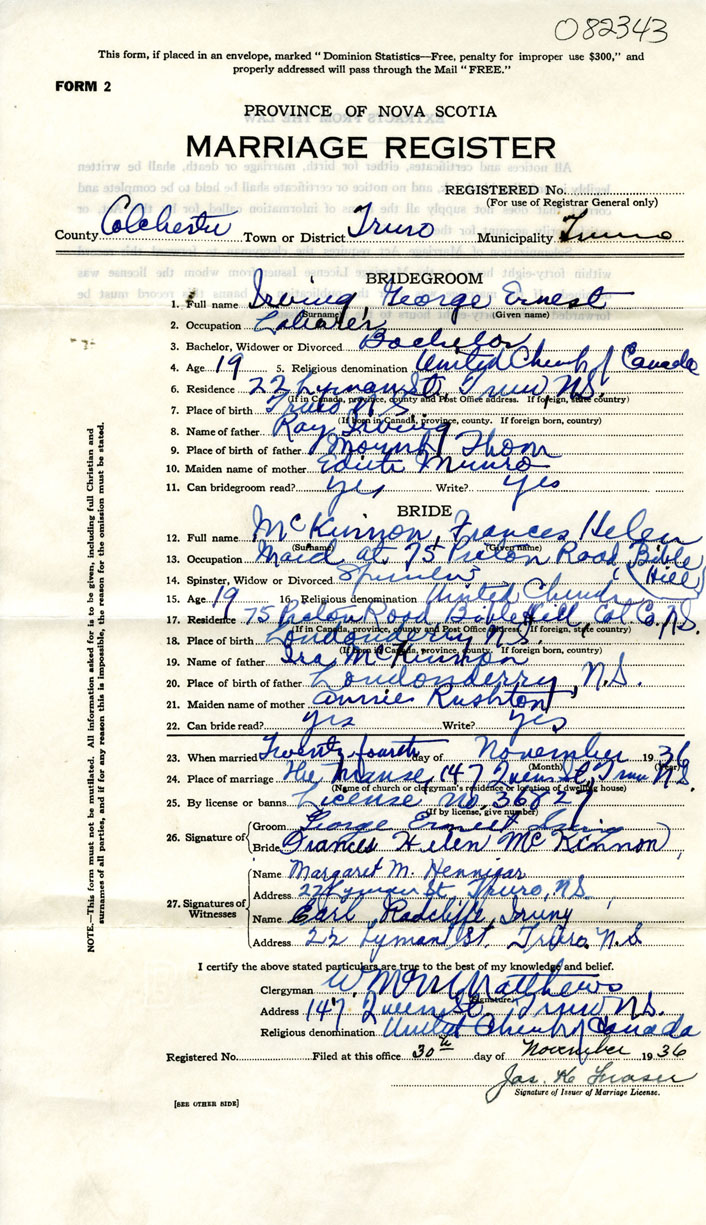 082343
This form, if placed in an envelope, marked "Dominion Statistics—Free, penalty for improper use $300," and
properly addressed will pass through the Mail "FREE."
FORM 2
PROVINCE OF NOVA SCOTIA
MARRIAGE REGISTER
REGISTERED No.
(For use of Registrar General only)
County Colchester Town or District Truro Municipality Truro
BRIDEGROOM
1. Full name Irving, George Ernest
(Surname) (Given name)
2. Occupation Laborer
3. Bachelor, Widower or Divorced Bachelor
4. Age 19 5. Religious denomination United Church of Canada
6. Residence 22 Lyman St. Truro N.S.
(If in Canada, province, county and Post Office address. If foreign, state country)
7. Place of birth Truro N.S.
(If born in Canada, province, county. If foreign born, country)
8. Name of father Ray Irving
9. Place of birth of father Mount Thom
10. Maiden name of mother Edith Munro
11. Can bridegroom read? yes Write? yes
BRIDE
12. Full name McKinnon, Frances Helen
(Surname) (Given name)
13. Occupation Maid at 75 Road Bible
Hill)
14. Spinster, Widow or Divorced Spinster
15. Age 19 16. Religious denomination United Church
17. Residence 75 Road Bible Hill, Col Co. N.S.
(If in Canada, province, county and Post Office address. If foreign, state country)
18. Place of birth Londonderry N.S.
(If born in Canada, province, county. If foreign born, country)
19. Name of father Ira McKinnon
20. Place of birth of father Londonderry, N.S.
21. Maiden name of mother Annie Rushton
22. Can bride read? yes Write? yes
23. When married Twenty fourth day of November 1936
(Month) (Year)
24. Place of marriage The Manse, 147 Queen St, Truro N.S.
(Name of church or clergyman's residence or location of dwelling house)
25. By license or banns License no. 36827
(If by license, give number)
26. Signature of
Groom George Ernest Irving
Bride Frances Helen McKinnon
27. Signatures of Witnesses
Name Margaret M. Hennigar
Address 22 Lyman St, Truro, N.S.
Name Earl Radcliffe Irving
Address 22 Lyman St. Truro N.S.
I certify the above stated particulars are true to the best of my knowledge and belief.
Clergyman W. Matthews
(Signature)
Address 147 Queen St Truro N.S.
Religious denomination United Church of Canada
Registered No. Filed at this office 30th day of November 1936
Jas. K. Fraser
Signature of Issuer of Marriage License.
[SEE OTHER SIDE]
NOTE.—This form must not be mutilated. All information asked for is to be given, including full Christian and
surnames of all parties, and if for any reason this is impossible, the reason for the omission must be stated.